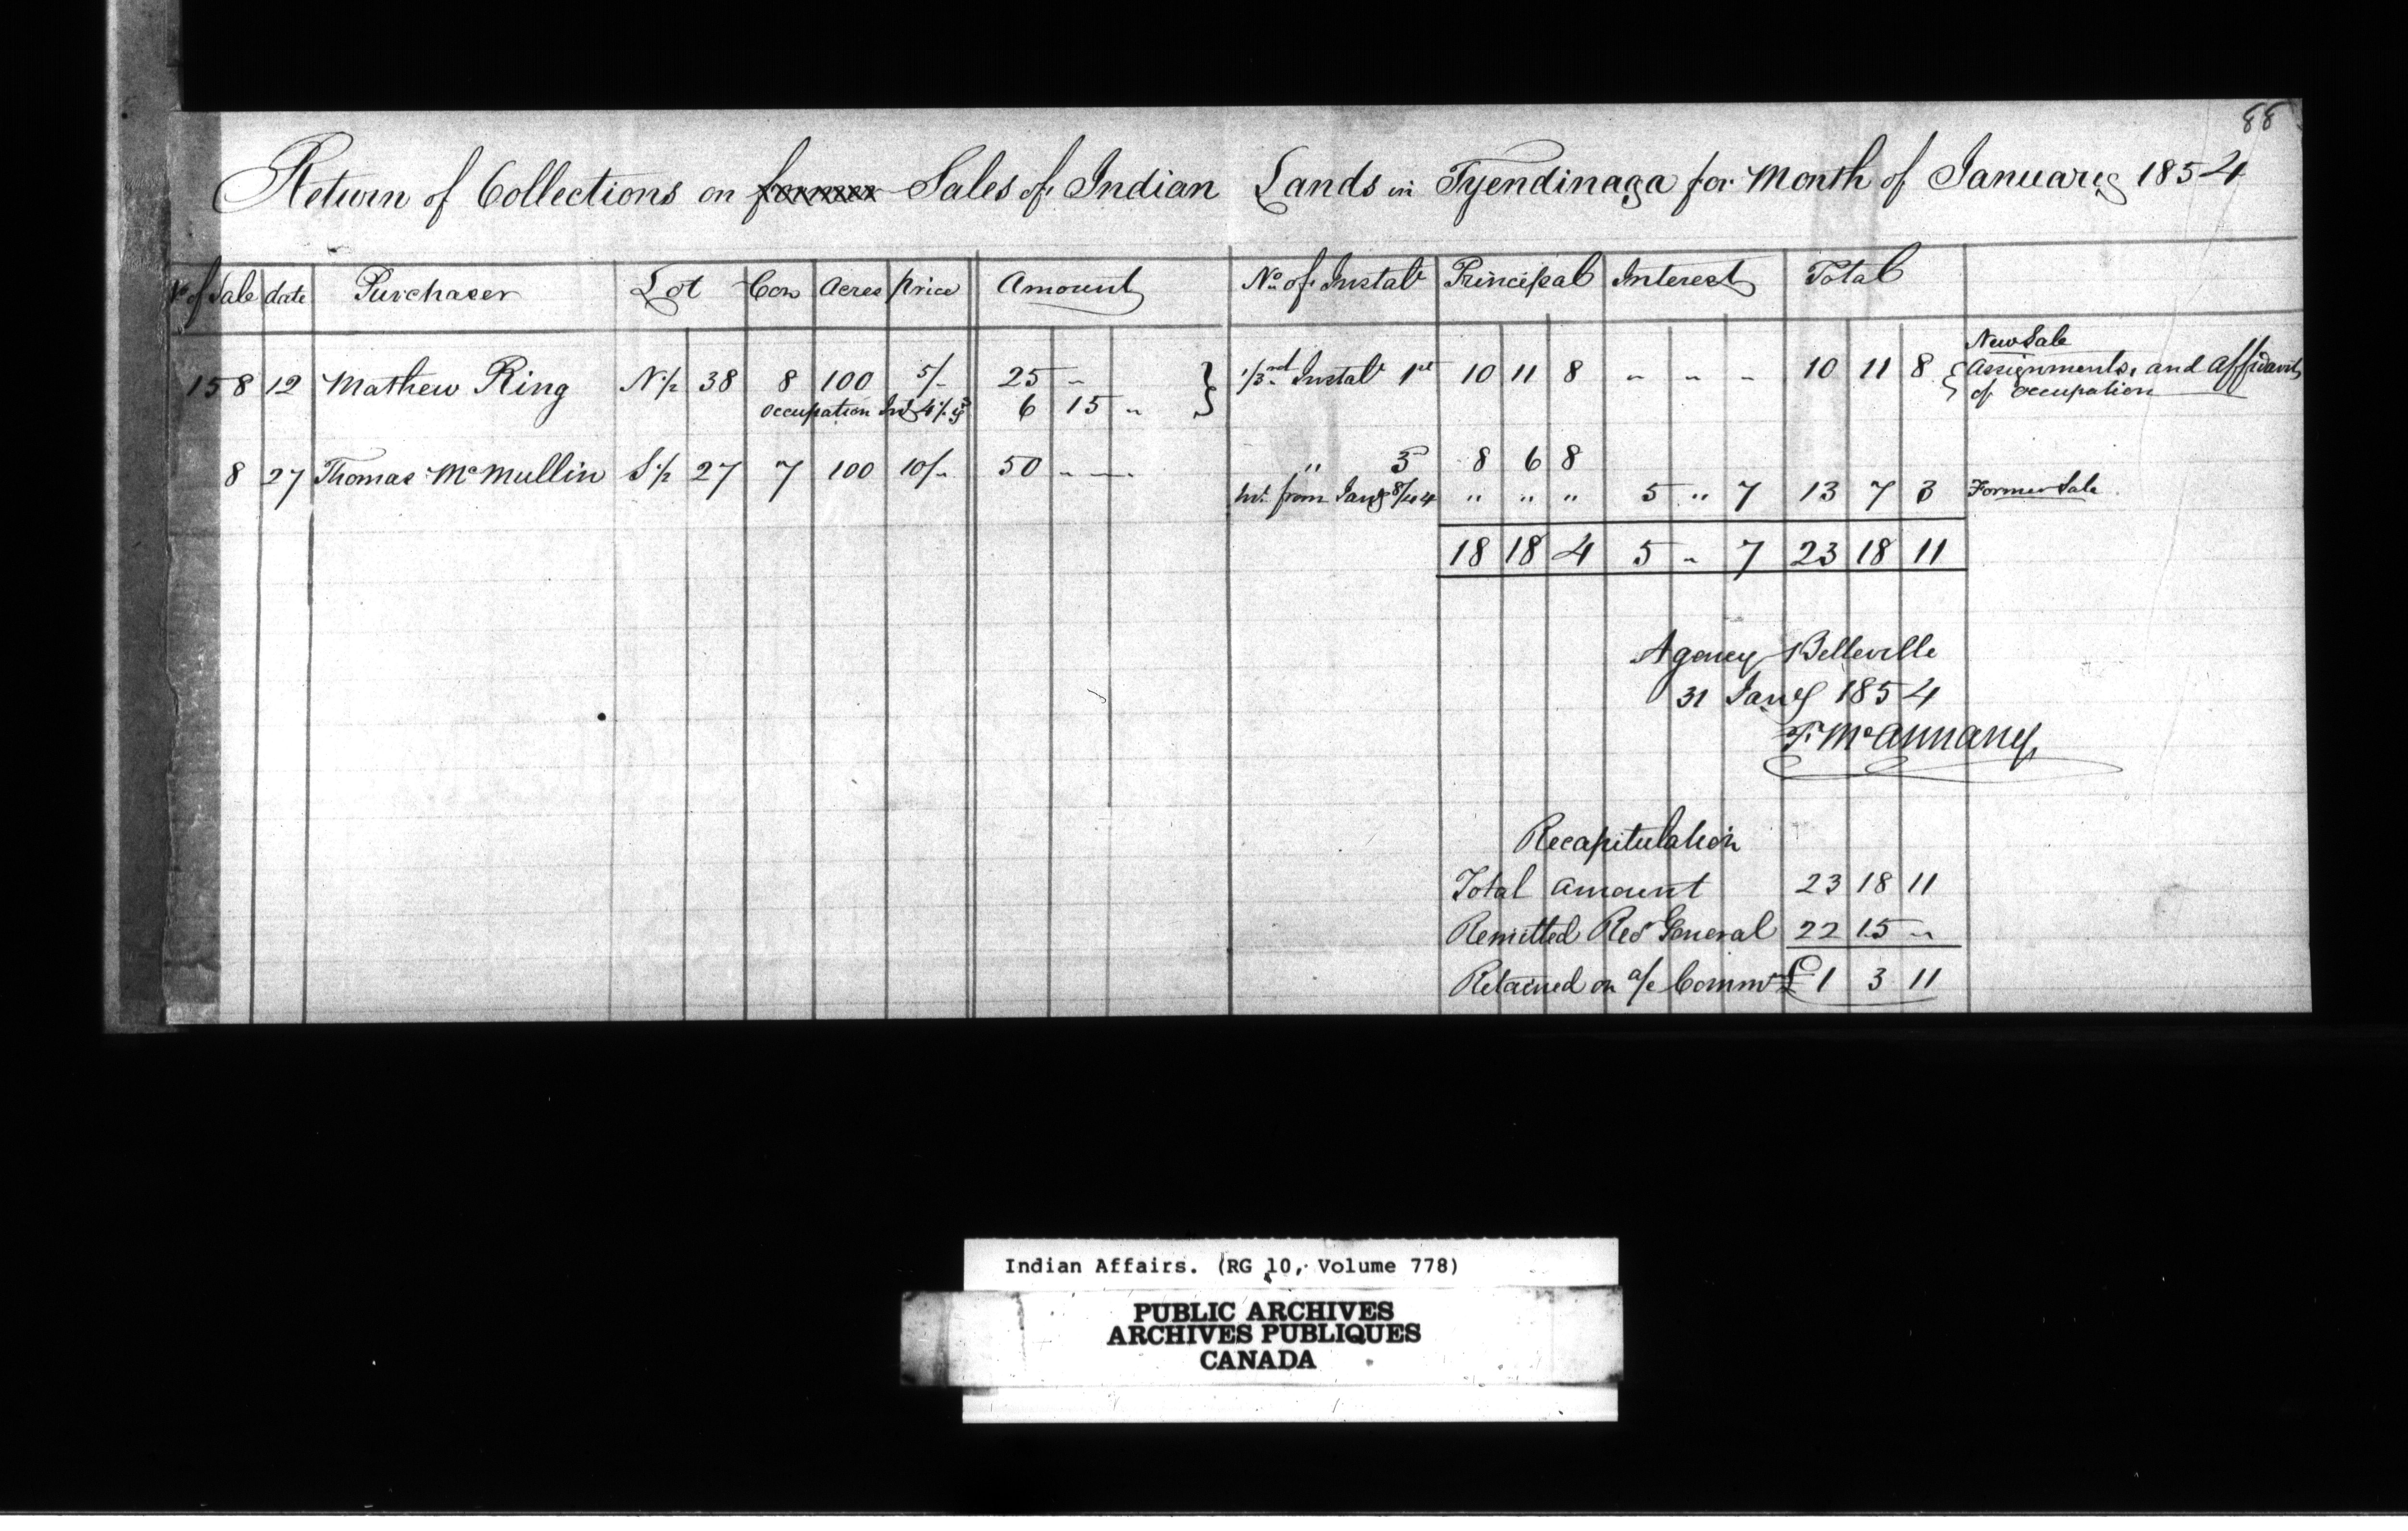 88
Return of Collections on former Sales of Indian Lands in Tyendinaga for Month of January 1854
No of Sale date Purchaser Lot Con Acres Price Amount No. of Instalt Principal Interest Total
New Sale
158 12 Mathew Ring N½ 38 8 100 5/- 25 " } 1/3rd Instalt 1st 10 11 8 " " " 10 11 8 { Assignments, and Affidavit
occupation Int 4/. 6 15 " of occupation
8 27 Thomas McMullin S½ 27 7 100 10/- 50 " " " 3 8 6 8
Int. from Jany 8/44 " " " 5 " 7 13 7 3 Former Sale
18 18 4 5 " 7 23 18 11
Agency Belleville
31 Jany 1854
T. McAnnany
Recapitulation
Total Amount 23 18 11
Remitted Rec General 22 15 "
Retained on a/c Commn £1 3 11
Indian Affairs. (RG 10, Volume 778)
PUBLIC ARCHIVES
ARCHIVES PUBLIQUES
CANADA